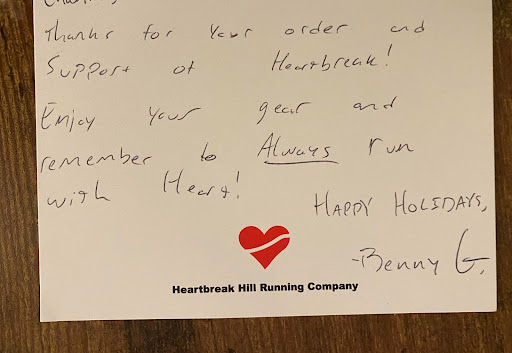 Thanks for your order and
Support of Heartbreak!
Enjoy your gear and
remember to Always run
with Heart!
HAPPY HOLIDAYS,
-Benny G.
Heartbreak Hill Running Company